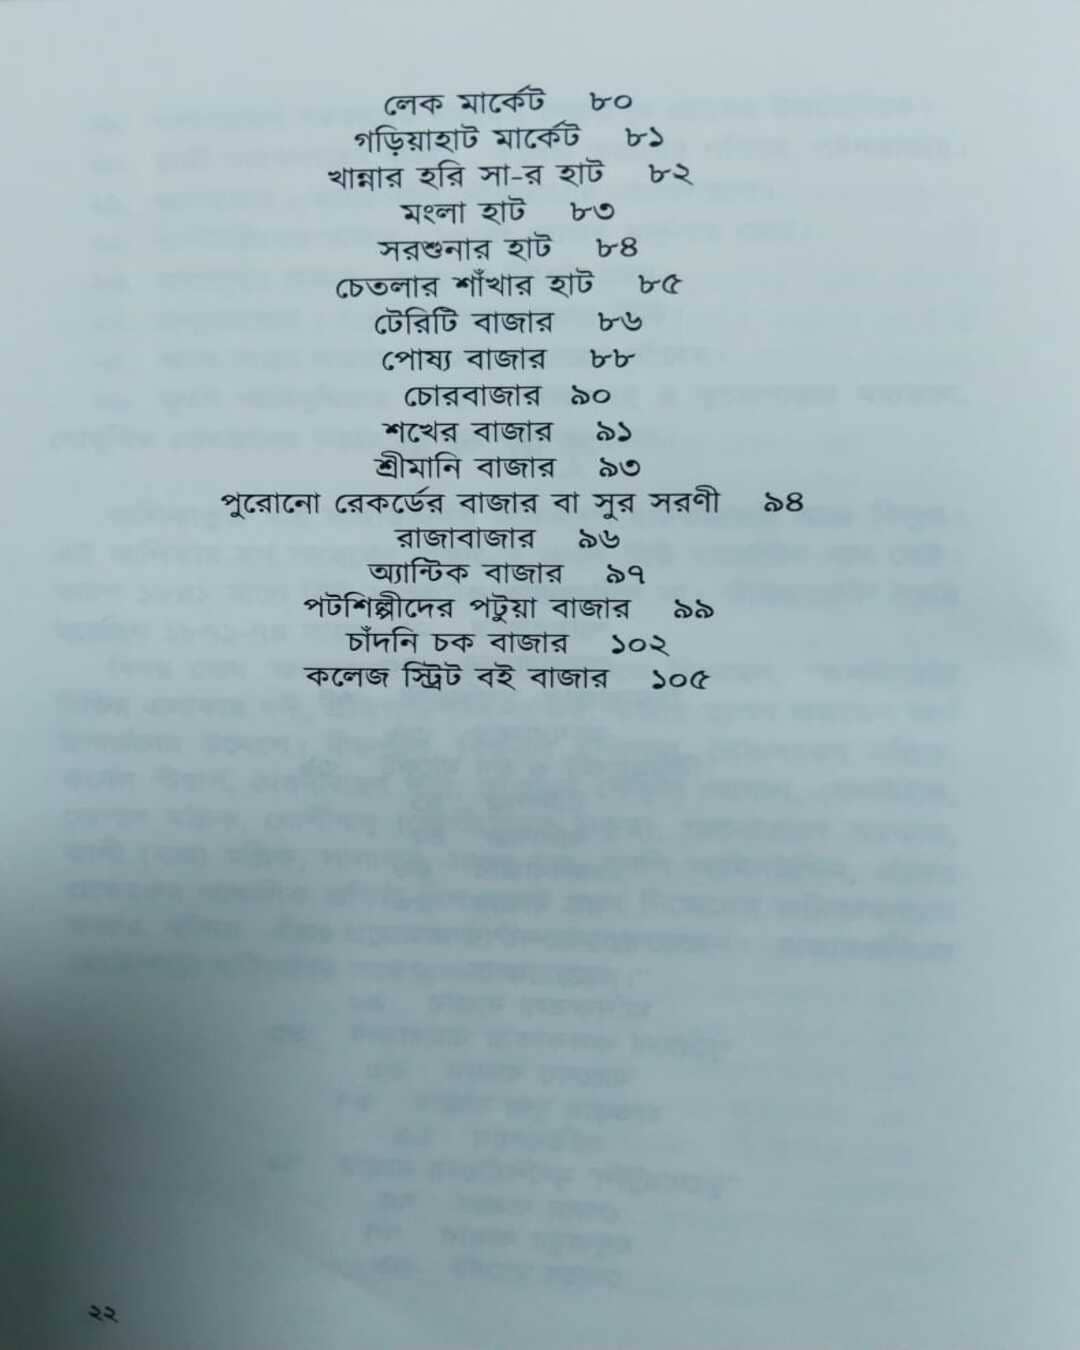 লেক মার্কেট ৮০
গড়িয়াহাট মার্কেট ৮১
খান্নার হরি সা-র হাট ৮২
মংলা হাট ৮৩
সরশুনার হাট ৮৪
চেতলার শাঁখার হাট ৮৫
টেরিটি বাজার ৮৬
পোষ্য বাজার ৮৮
চোরবাজার ৯০
শখের বাজার ৯১
শ্রীমানি বাজার ৯৩
পুরোনো রেকর্ডের বাজার বা সুর সরণী ৯৪
রাজাবাজার ৯৬
অ্যান্টিক বাজার ৯৭
পটশিল্পীদের পটুয়া বাজার ৯৯
চাঁদনি চক বাজার ১০২
কলেজ স্ট্রিট বই বাজার ১০৫
২২